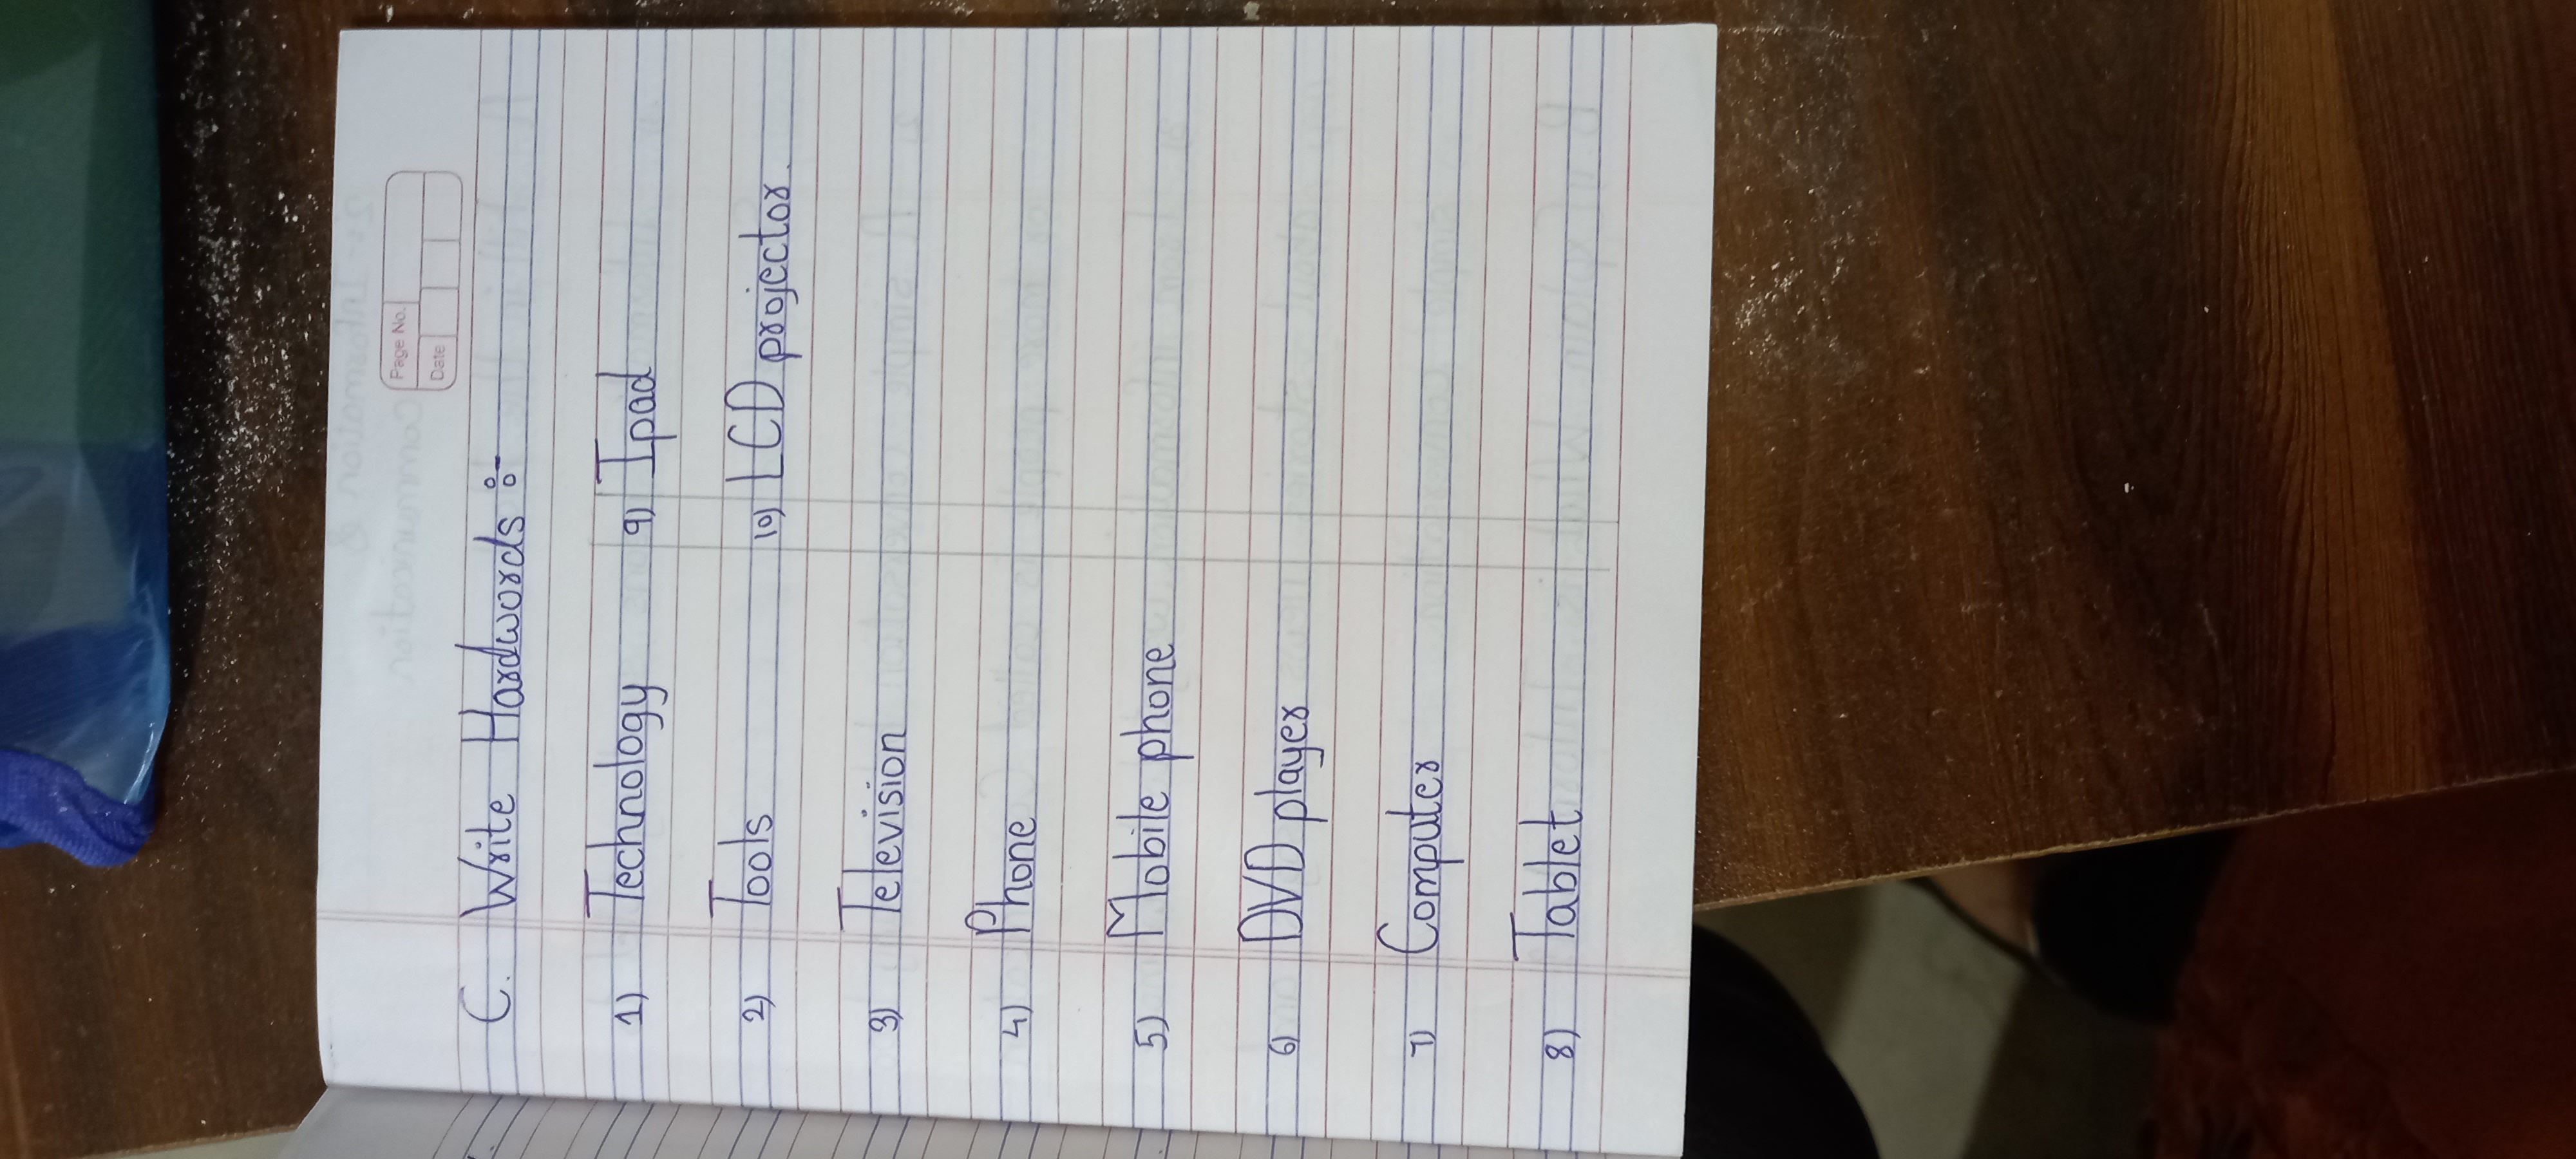 Page No.
Date
C. Write Hardwords :-
1) Technology
2) Tools
3) Television
4) Phone
5) Mobile phone
6) DVD player
7) Computer
8) Tablet
9) Ipad
10) LCD projector.